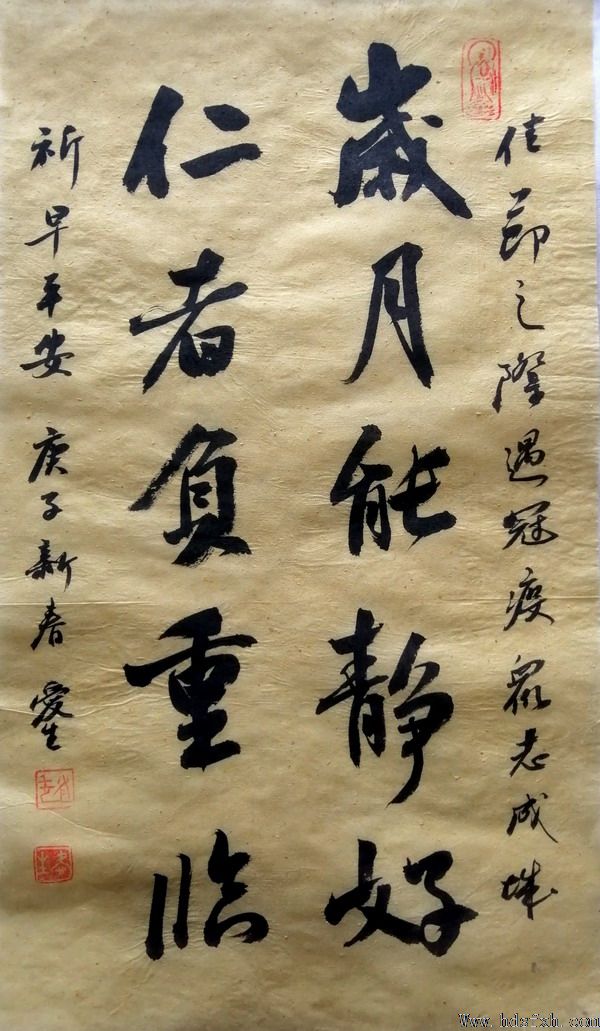 佳節之際遇冠疫眾志成城
歲月能静好
仁者負重临
祈早平安 庚子新春
Www.hdsfxh.com